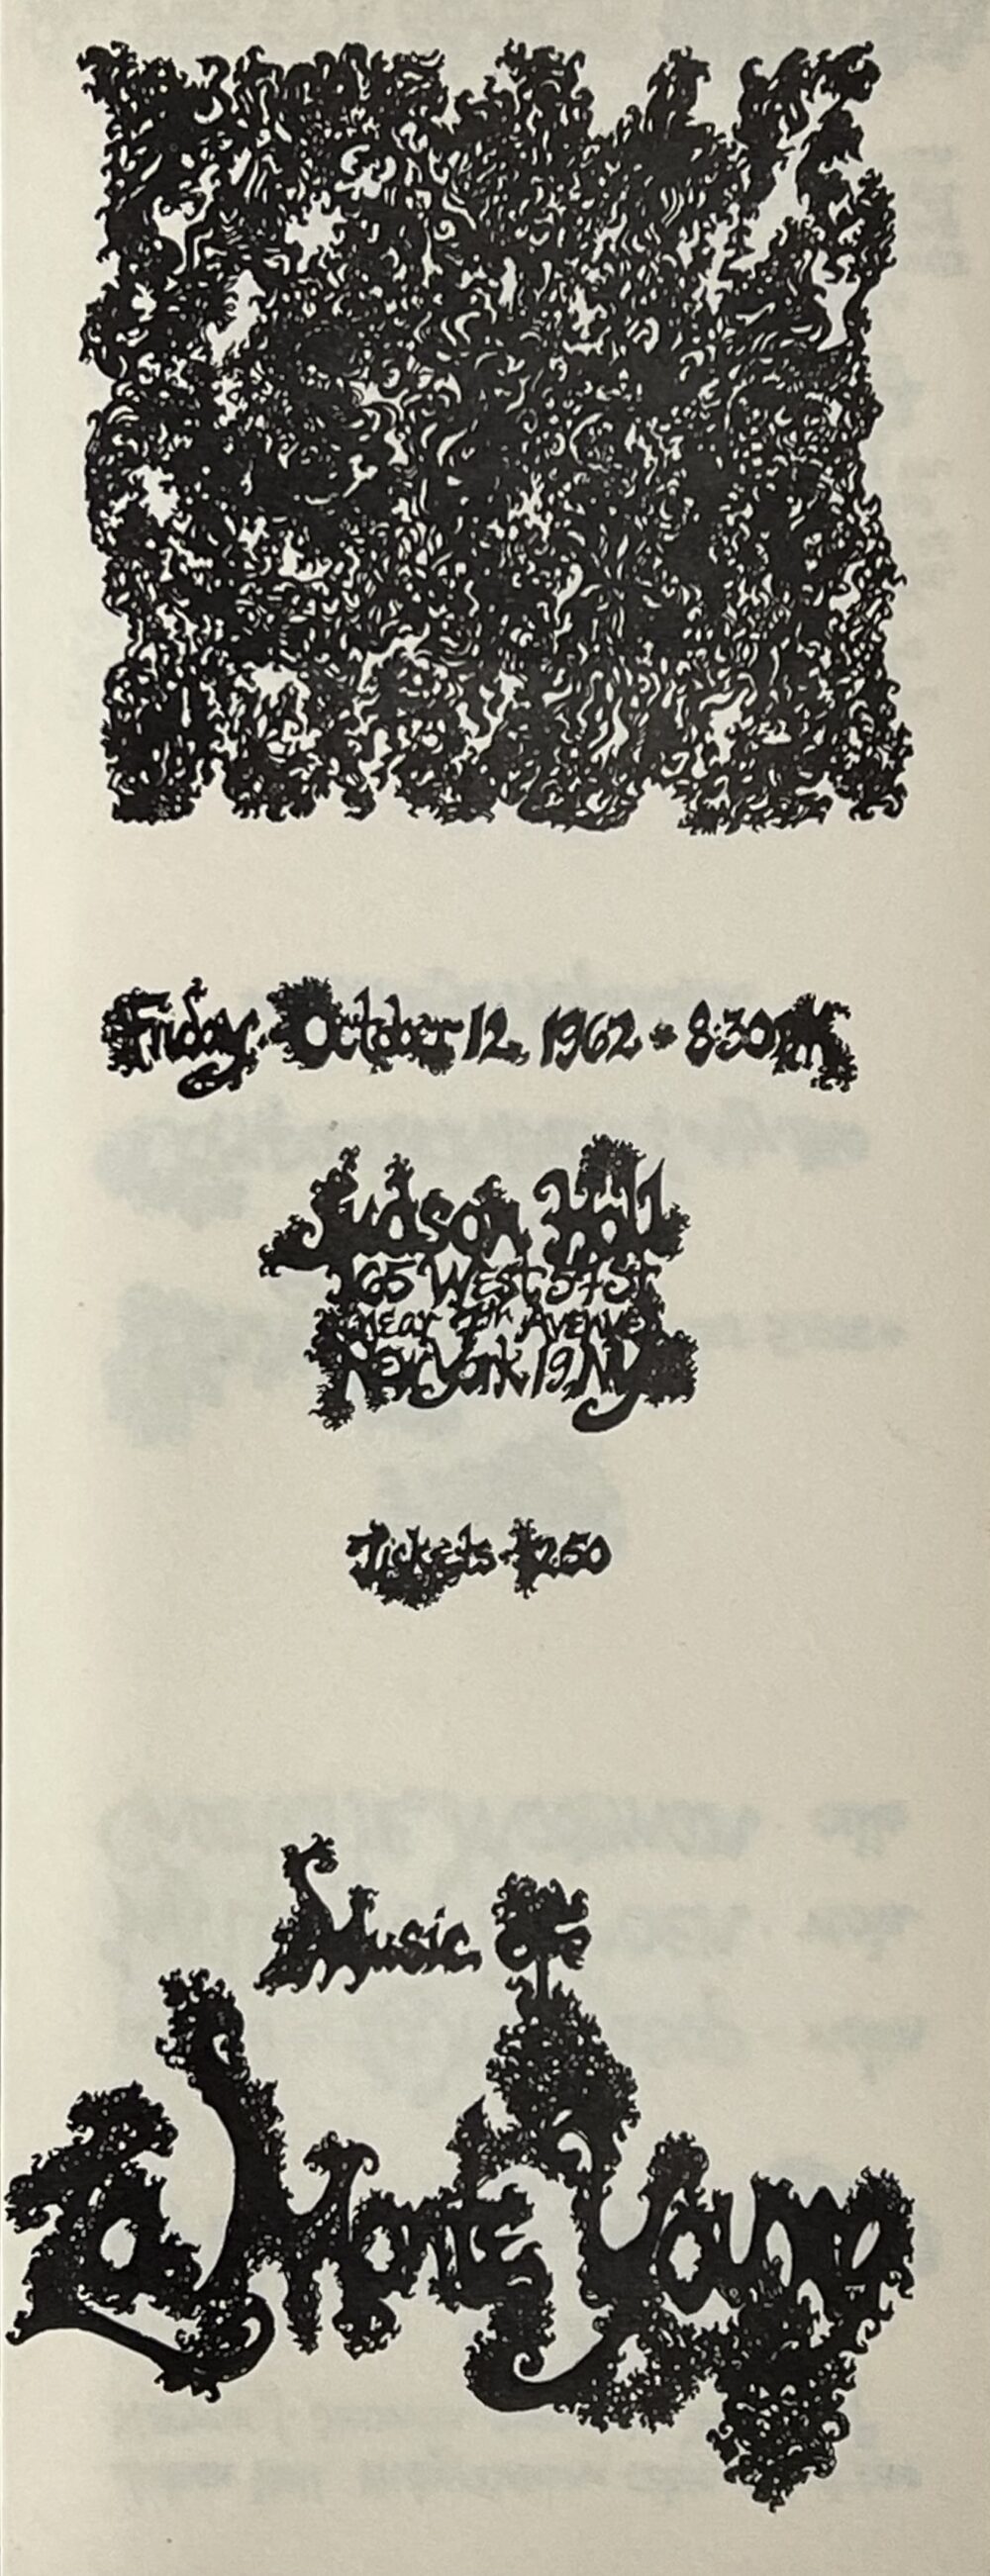 Friday · October 12, 1962 • 8:30PM
Judson Hall
165 West 57 St.
(near 7th Avenue)
New York 19, NY
Tickets $2.50
Music Of
La Monte Young